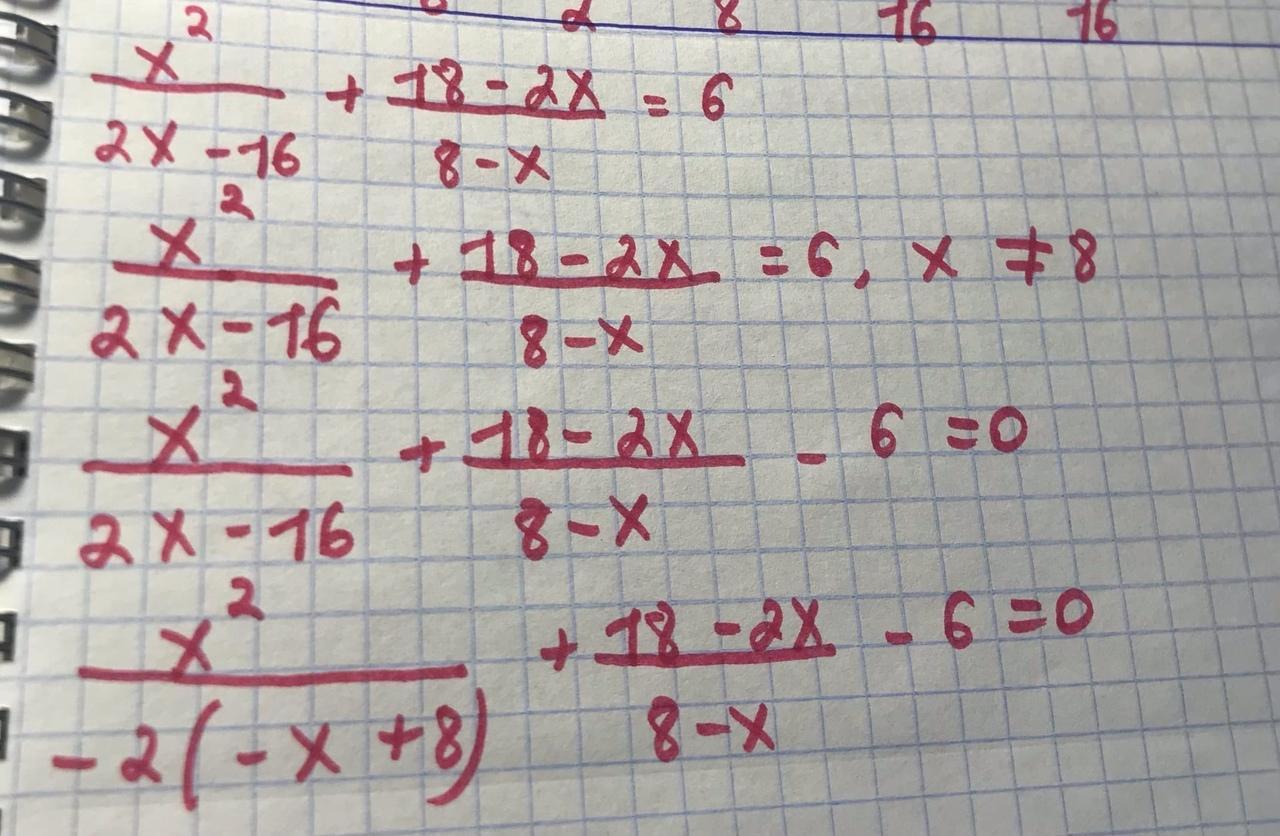 2 8 16 16
x²/(2x-16) + (18-2x)/(8-x) = 6
x²/(2x-16) + (18-2x)/(8-x) = 6, x ≠ 8
x²/(2x-16) + (18-2x)/(8-x) - 6 = 0
x²/(-2(-x+8)) + (18-2x)/(8-x) - 6 = 0